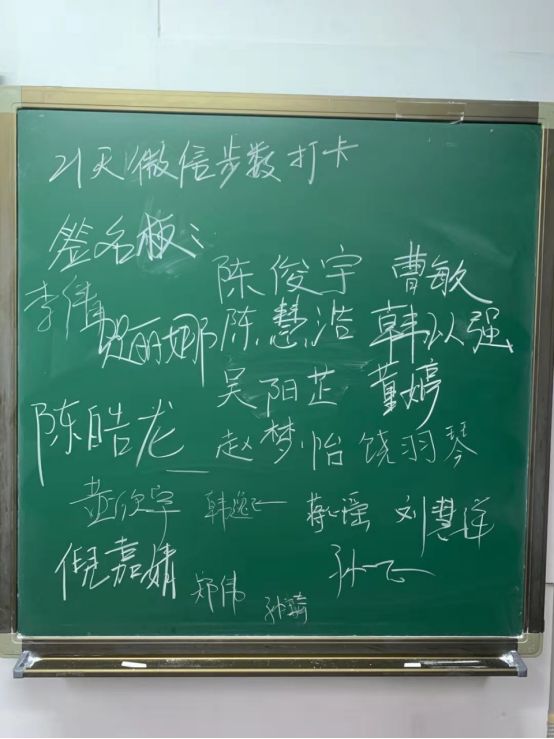 21天微信步数打卡
签名板:
陈俊宇 曹敏
李伟 陈慧浩 韩以强
吴阳芷 董婷
陈皓龙 赵梦怡 饶羽琴
黄欣宇 韩逸 刘慧洋
倪嘉婧 郑伟 孙琦 孙飞